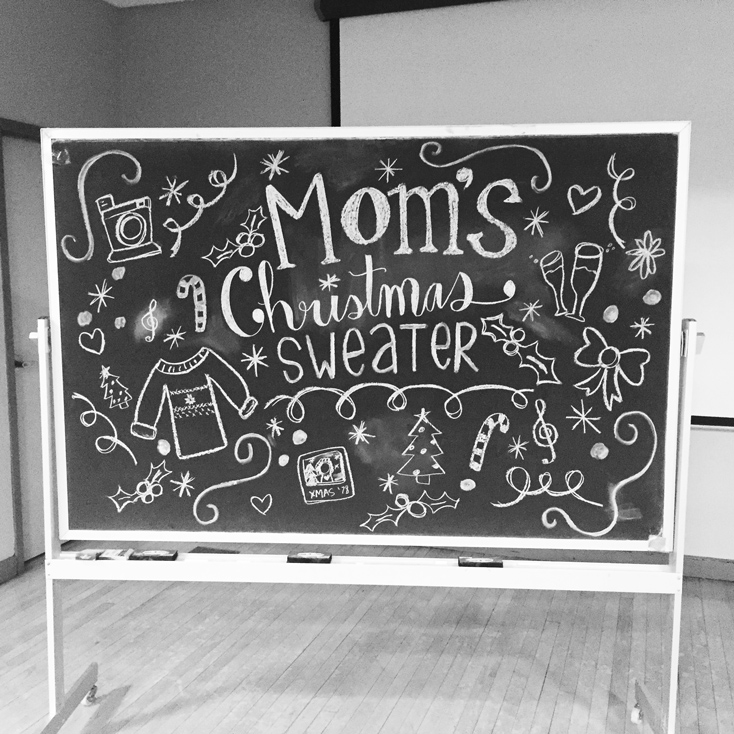 Mom's
Christmas
SWEATER
XMAS '78